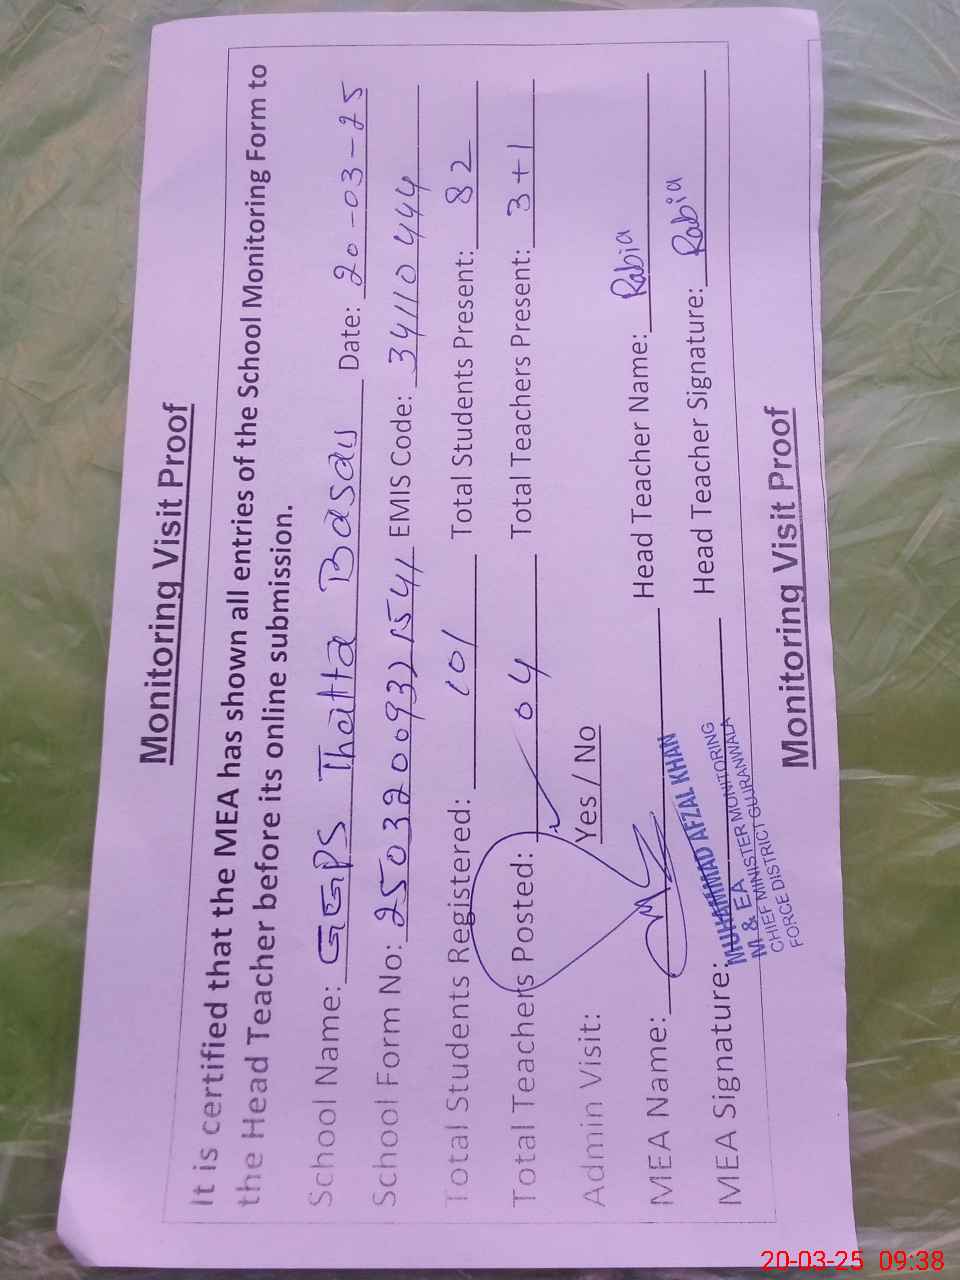 Monitoring Visit Proof
It is certified that the MEA has shown all entries of the School Monitoring Form to
the Head Teacher before its online submission.
School Name: GGPS Thatta Basau Date: 20-03-25
School Form No: 2503200932 1541 EMIS Code: 34110444
Total Students Registered: 101 Total Students Present: 82
Total Teachers Posted: 04 Total Teachers Present: 3+1
Admin Visit: Yes / No
MEA Name: Head Teacher Name: Rabia
MEA Signature: Head Teacher Signature: Rabia
MUHAMMAD AFZAL KHAN
M & EA
CHIEF MINISTER MONITORING
FORCE DISTRICT GUJRANWALA
Monitoring Visit Proof
20-03-25 09:38